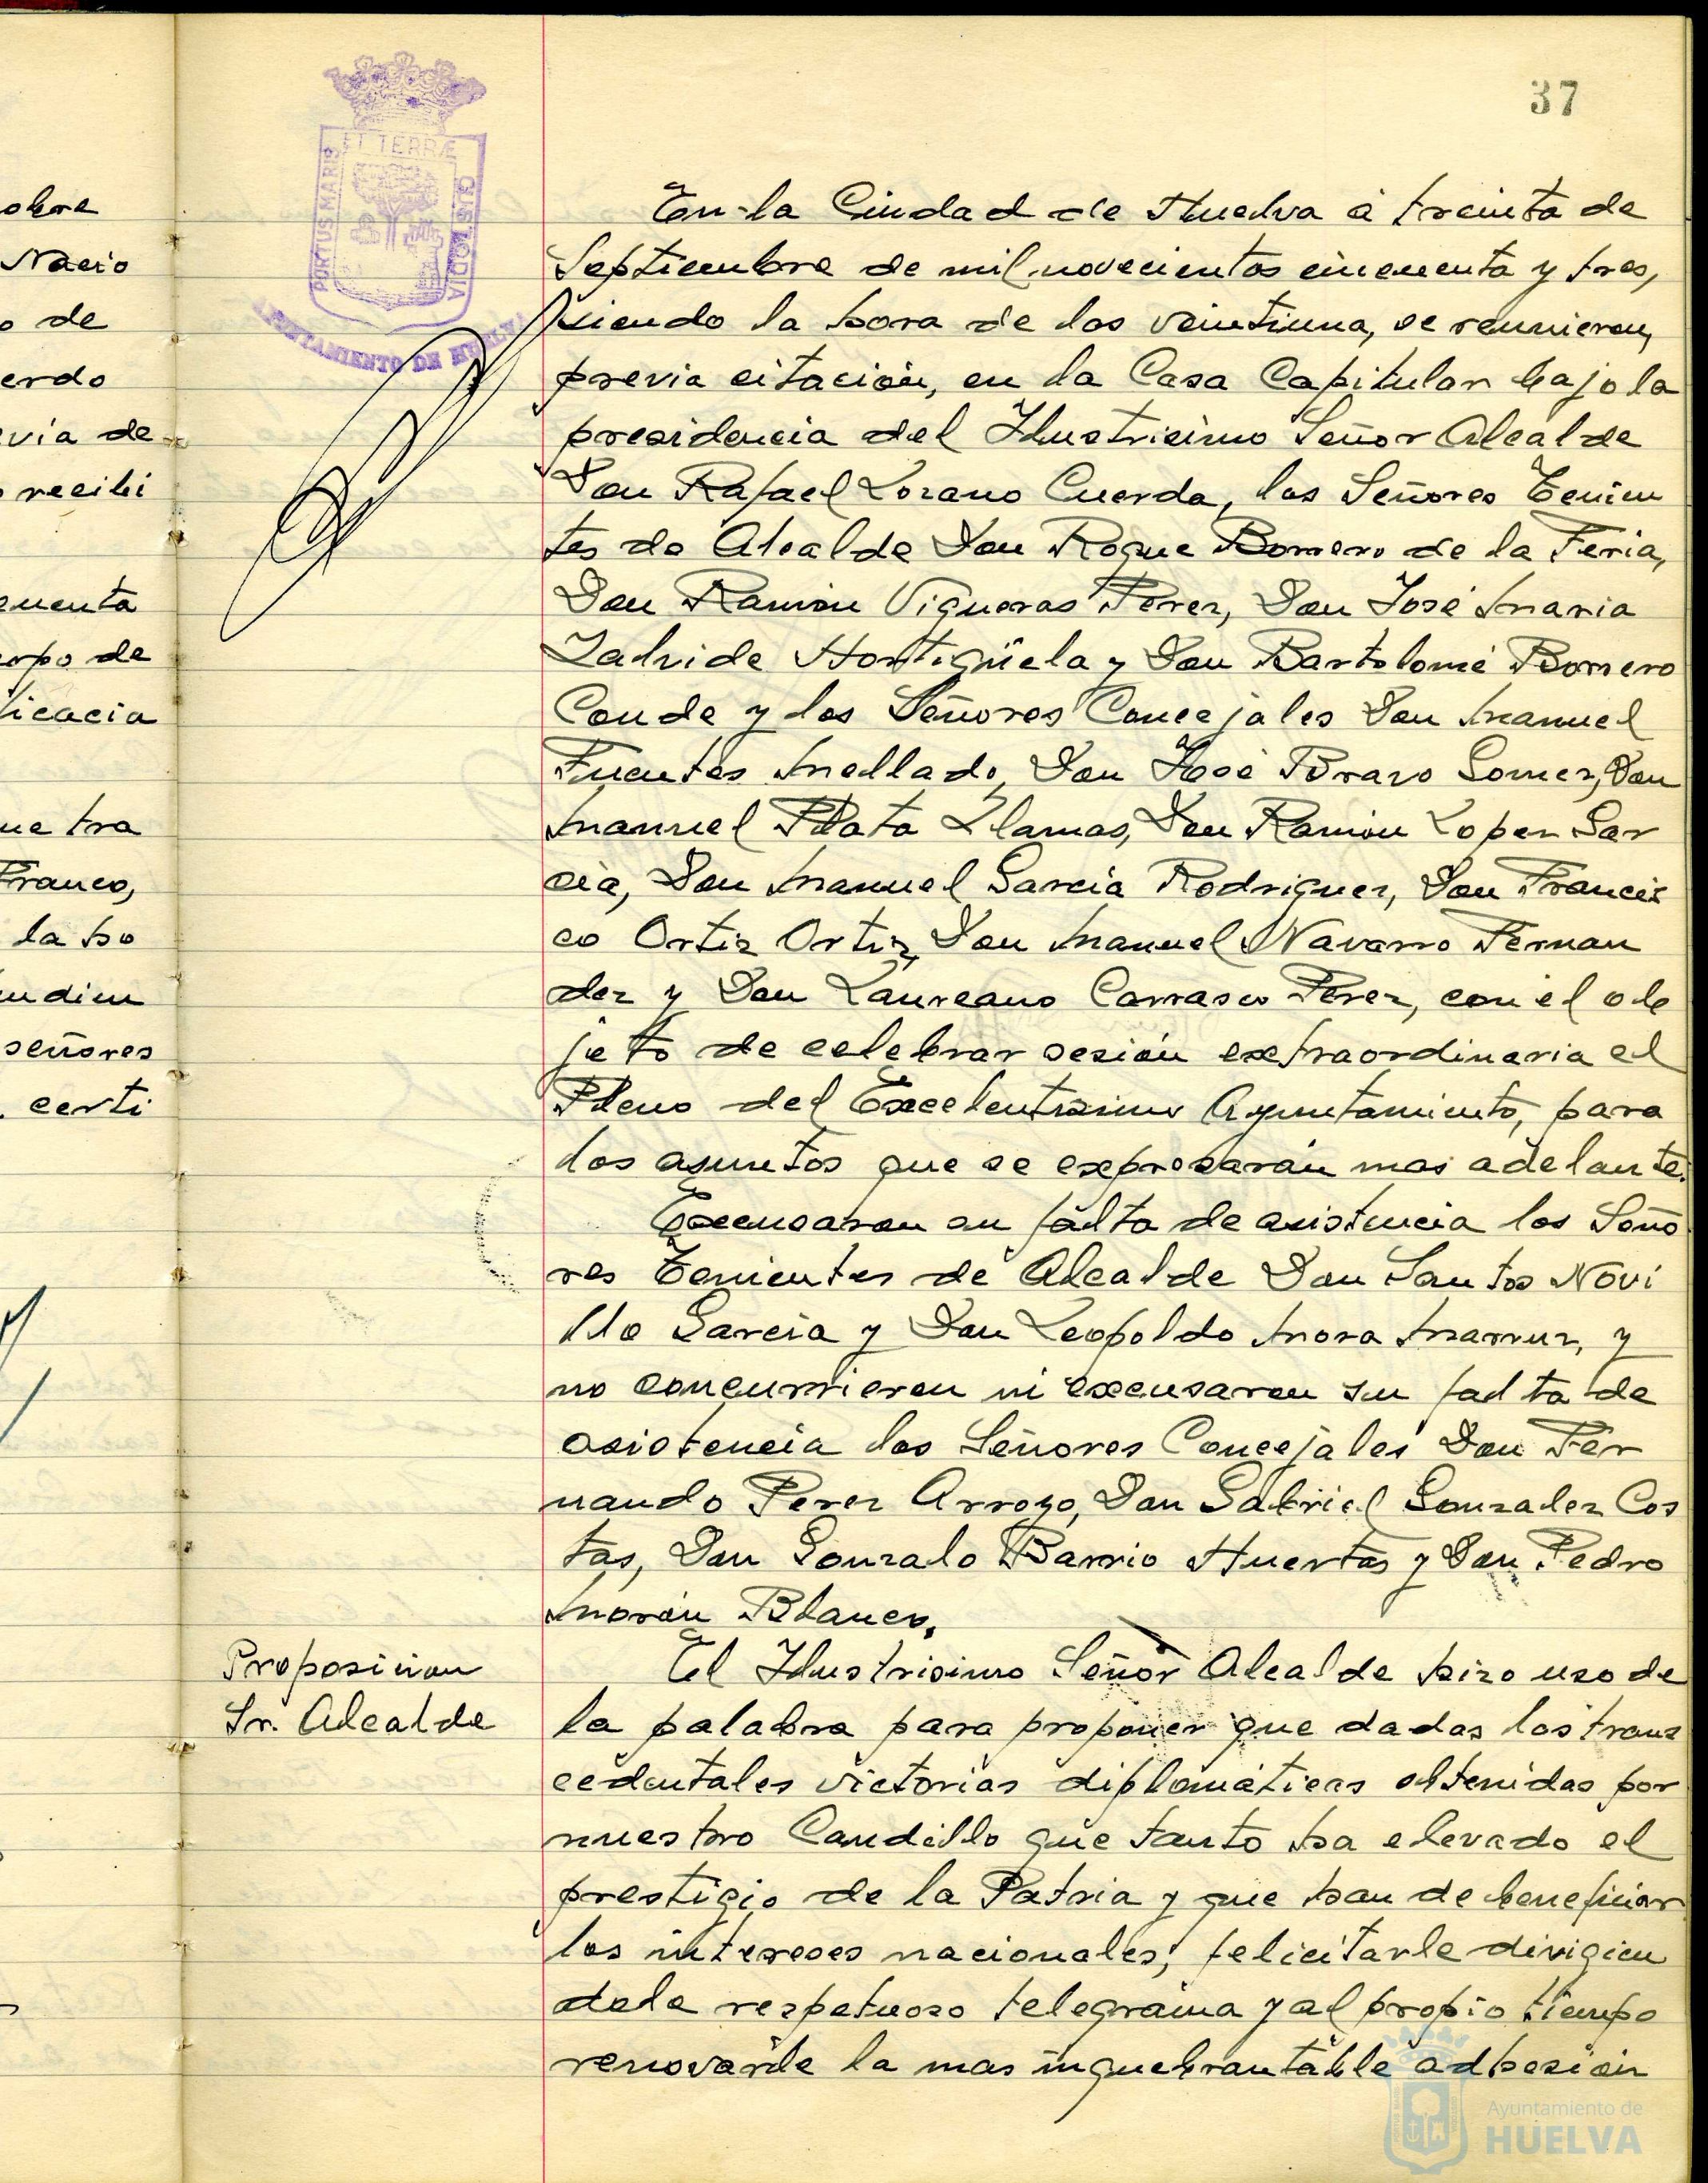 37
PORTUS MARIS
ET TERRÆ
CUSTODIA
AYUNTAMIENTO DE HUELVA
Nacio
o de
erdo
via de
recibi
cuenta
erpo de
ticacia
ue tra
Franco,
la ho
ndien
señores
certi
En la Ciudad de Huelva a treinta de
Septiembre de mil novecientos cincuenta y tres,
siendo la hora de las veintiuna, se reunieron,
previa citación, en la Casa Capitular bajo la
presidencia del Ilustrisimo Señor Alcalde
Don Rafael Lozano Cuerda, los Señores Tenien
tes de Alcalde Don Roque Borrero de la Feria,
Don Ramón Vigueras Perez, Don José Maria
Zalvide Hortigüela y Don Bartolomé Borrero
Conde y los Señores Concejales Don Manuel
Fuentes Mellado, Don José Bravo Gomez, Don
Manuel Plata Llamas, Don Ramón Lopez Gar
cia, Don Manuel Garcia Rodriguez, Don Francis
co Ortiz Ortiz, Don Manuel Navarro Fernan
dez y Don Laureano Carrasco Perez, con el ob
jeto de celebrar sesión extraordinaria el
Pleno del Excelentisimo Ayuntamiento, para
los asuntos que se expresarán mas adelante.
Excusaron su falta de asistencia los Seño
res Tenientes de Alcalde Don Santos Novi
llo Garcia y Don Leopoldo Mora Marruz, y
no concurrieron ni excusaron su falta de
asistencia los Señores Concejales Don Fer
nando Perez Arroyo, Don Gabriel Gonzalez Cos
tas, Don Gonzalo Barrio Huertas y Don Pedro
Morón Blanco.
Proposicion
Sr. Alcalde
El Ilustrisimo Señor Alcalde hizo uso de
la palabra para proponer que dadas las trans
cedentales victorias diplomáticas obtenidas por
nuestro Caudillo que tanto ha elevado el
prestigio de la Patria y que han de beneficiar
los intereses nacionales, felicitarle dirigien
dole respetuoso telegrama y al propio tiempo
renovarle la mas inquebrantable adhesión
Ayuntamiento de
HUELVA